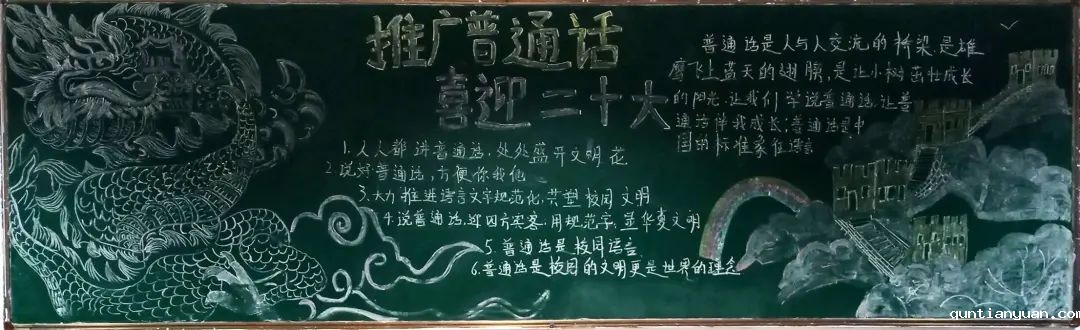 推广普通话
喜迎二十大
1.人人都讲普通话,处处盛开文明花
2.说好普通话,方便你我他
3.大力推进语言文字规范化,共塑校园文明
4.说普通话,迎四方宾客,用规范字,显华夏文明
5.普通话是校园语言
6.普通话是校园的文明更是世界的理念
普通话是人与人交流的桥梁是雄
鹰飞上蓝天的翅膀,是让小树茁壮成长
的阳光.让我们学说普通话.让普
通话伴我成长;普通话是中
国的标准家住语言
guntianyuan.com